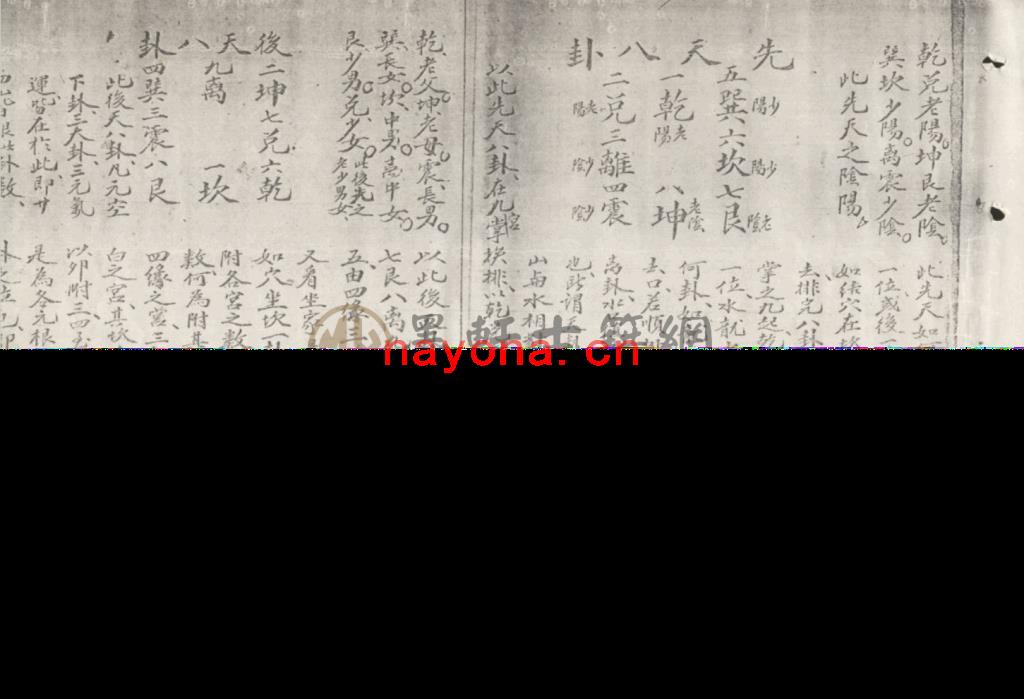 乾兌老陽。坤艮老陰。
巽坎少陽。离震少陰。
此先天之陰陽、
先天八卦
五巽少陽六坎少陽七艮老陰
一乾老陽 八坤老陰
二兌老陽三離少陰四震少陰
以此先天八卦、在九宮掌挨排、以乾
乾老父。坤老母。震長男。
巽長女。坎中男。离中女。
艮少男。兌少女。此後天之老少男女
後天八卦
二坤七兌六乾
九離 一坎
四巽三震八艮
此後天八卦、凡元空
下卦、三大卦、三元氣
運、皆在於此、即廿
此先天如
一位或後一
如結穴在
去排完八卦
掌之九起、乾
一位、水
何卦、如
去、口若順
离卦水
也、所謂
山与水相
以此後
七艮八离
五、由四
又看坐家
如穴坐坎一卦
附各宮之數
数、何為附其
四綠之宮、三
白之宮、其坎
以卯附三四
是為各元根
墨軒古籍網
nayona.cn